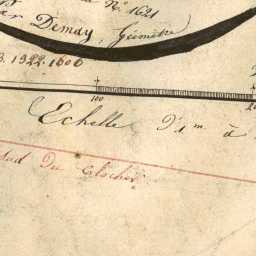 N° 1621
Par Demay, Géomètre
B. 1922.1606
100
Echelle d'1 m. à
Sud Du Clocher